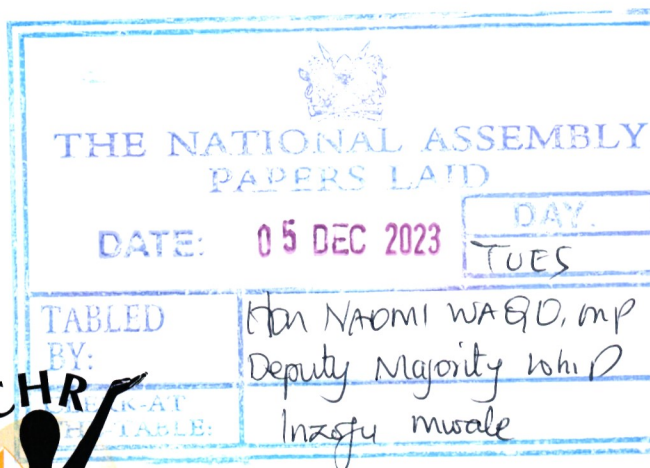 THE NATIONAL ASSEMBLY
PAPERS LAID
DATE: 05 DEC 2023
DAY.
TUES
TABLED BY:
Hon NAOMI WAQO, MP
Deputy Majority Whip
CLERK-AT THE-TABLE:
Inzofu Mwale
CHR